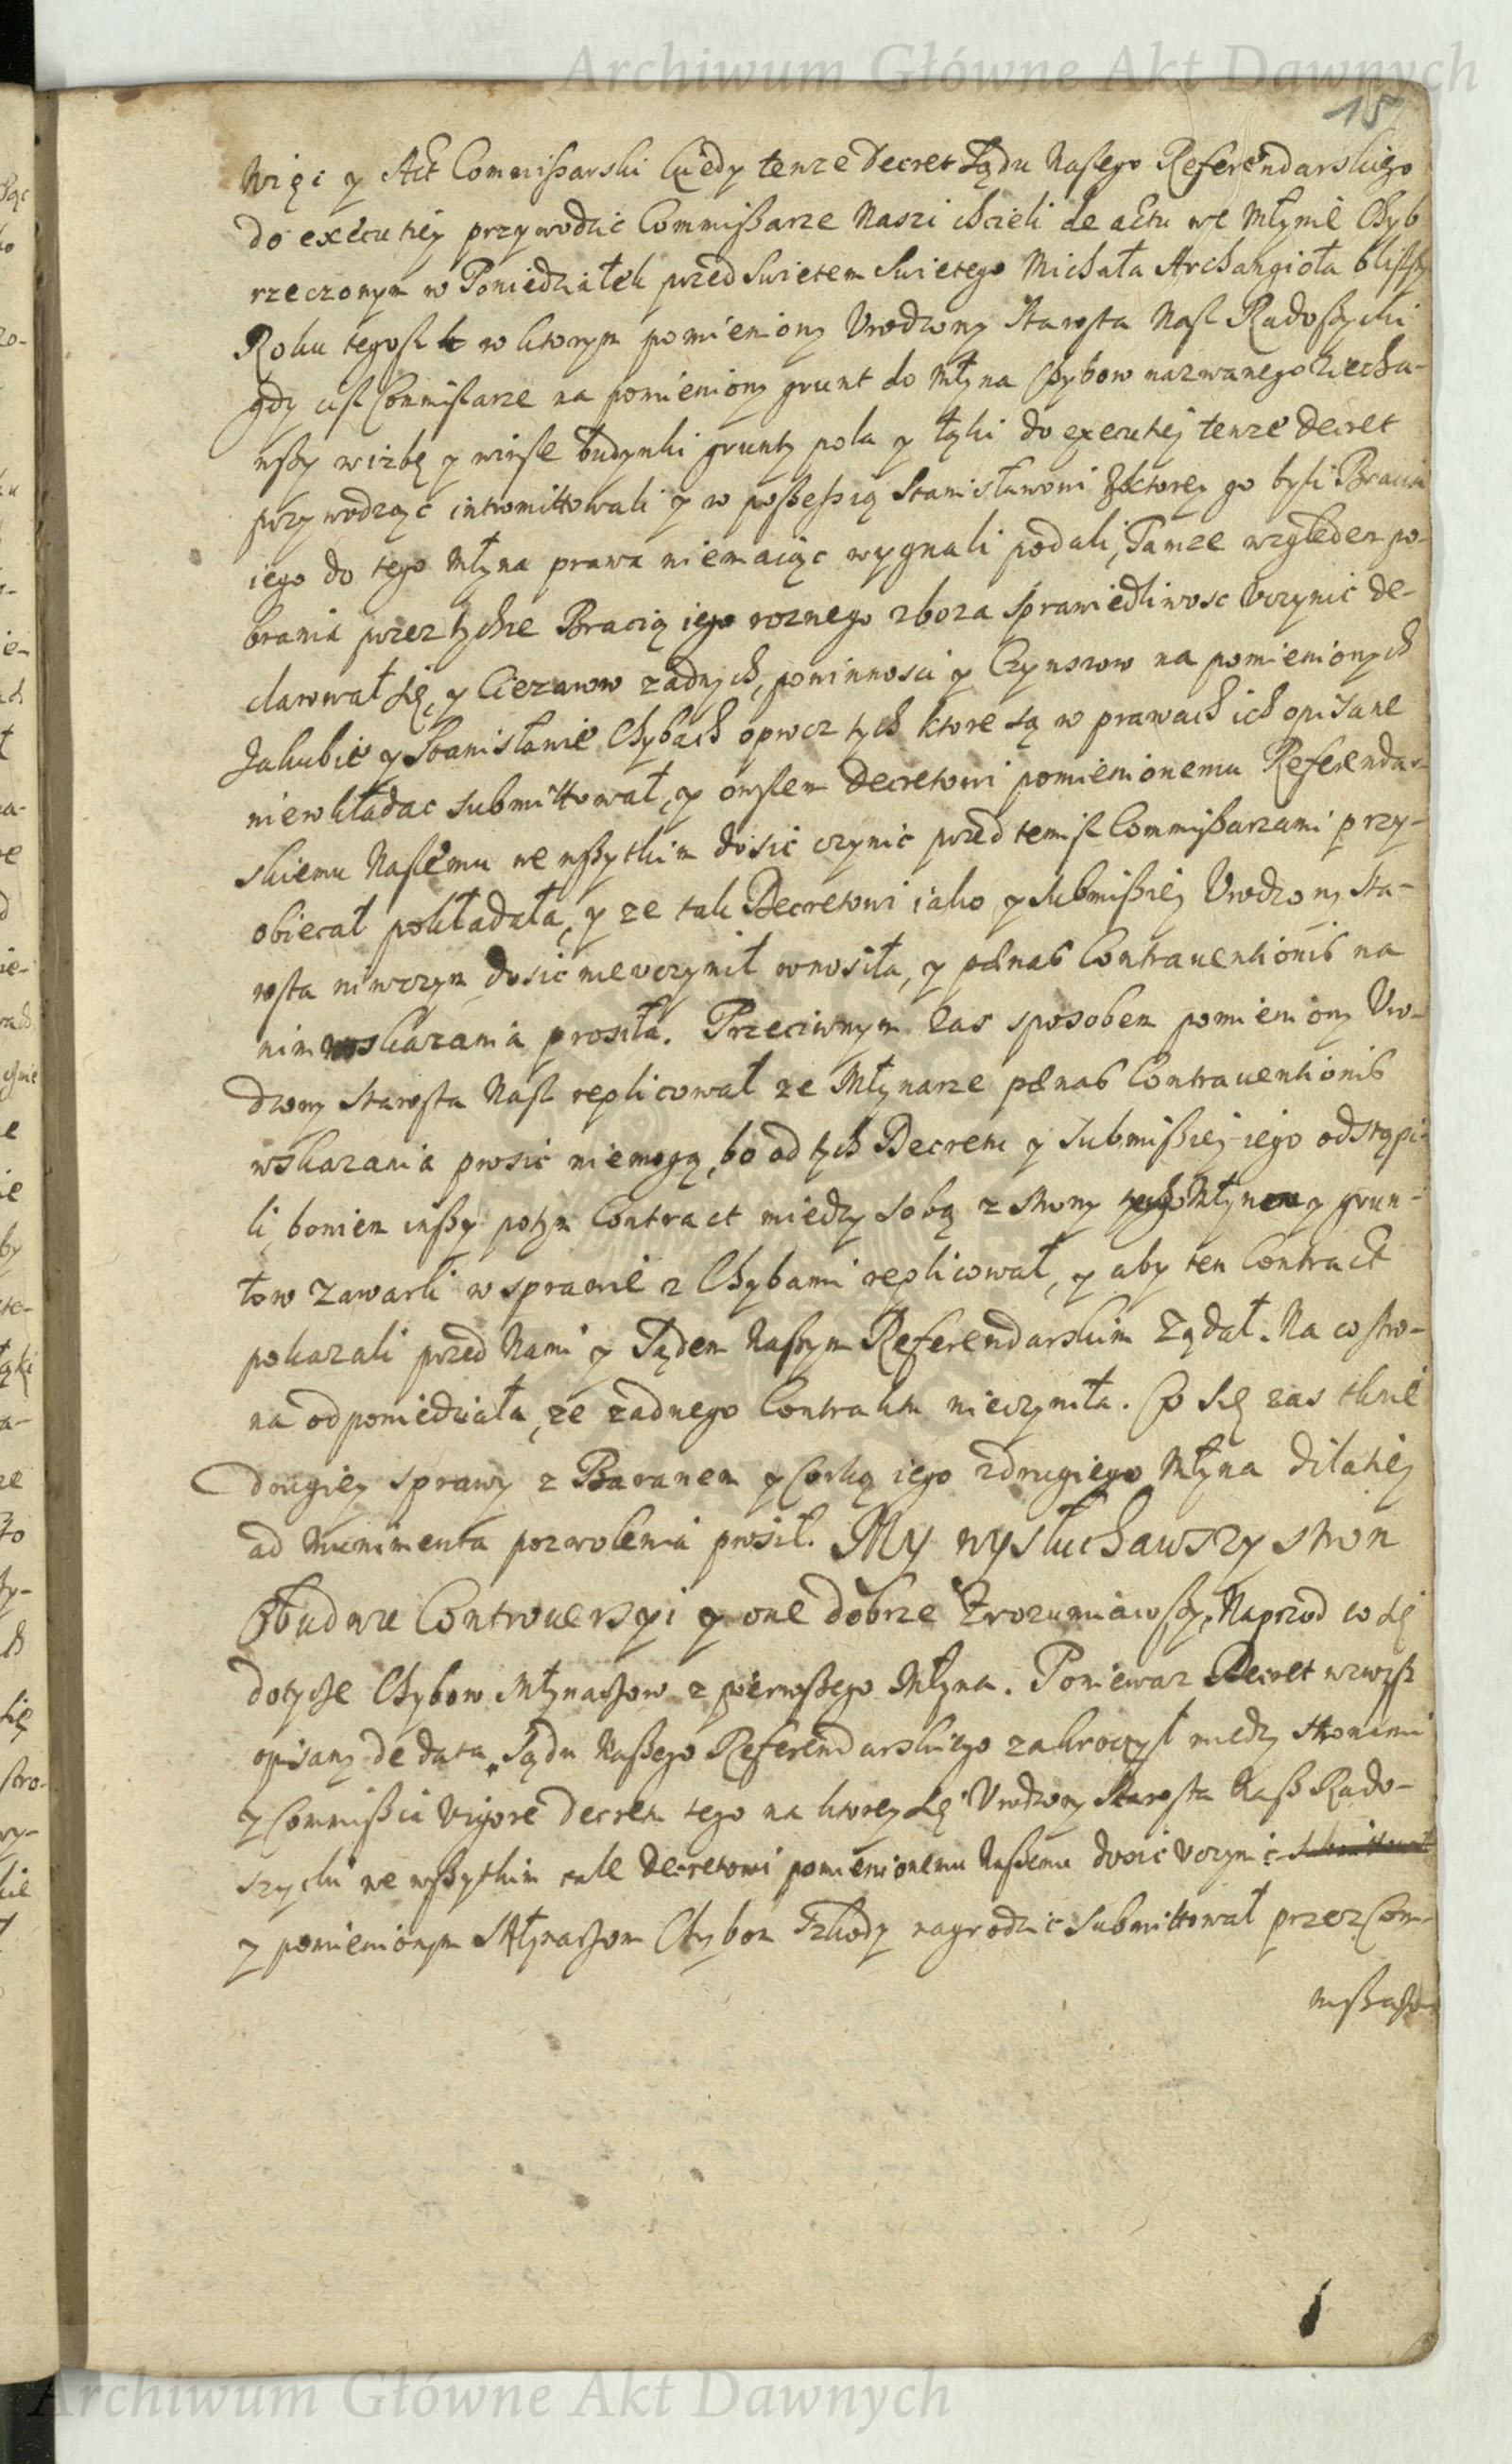 Archiwum Główne Akt Dawnych
15
Więc y Akt Commissarski kiedy tenze Decret Sądu Naszego Referendarskiego
do executiey przywodzic Commissarze Naszi chcieli de actu we Młynie Chyb
rzeczonym w Poniedziałek przed Swietem Swietego Michała Archangioła bliszszy
Roku tegosz w ktorym pomieniony Vrodzony Starosta Nasz Radoszycki
gdy cisz Commissarze na pomieniony grunt do Młyna Chybow nazwanego ziecha-
wszy w izbę y insze budynki grunty pola y łąki do executiey tenze Decret
przywodząc intromittowali y w possessią Stanisławowi z ktorey go byli Bracia
iego do tego Młyna prawa niemaiąc wygnali podali, Tamze względem po-
brania przez tychze Bracią iego roznego zboza sprawiedliwosc vczynic de-
clarował się, y Ciezarow zadnych, powinnosci y Czynszow na pomienionych
Jakubie y Stanisławie Chybach oprocz tych ktore są w prawach ich opisane
niewkładac submittował, y owszem Decretowi pomienionemu Referendar-
skiemu Naszemu we wszytkim dosic czynic przed temisz Commissarzami przy-
obiecał pokładała, y ze tak Decretowi iako y submissiey Vrodzony Sta-
rosta niwczym dosic nievczynił wnosiła, y pænas Contrauentionis na
nim wskazania prosiła. Przeciwnym zas sposobem pomieniony Vro-
dzony Starosta Nasz replicował ze Młynarze pænas Contrauentionis
wskazania prosic niemogą, bo od tych Decretu y submissiey iego odstąpi-
li, bowiem inszy potym Contract miedzy sobą z strony Młynow y grun-
tow zawarli w sprawie z Chybami replicował, y aby ten Contract
pokazali przed Nami y Sądem Naszym Referendarskim Ządał. Na co stro-
na odpowiedziała, ze zadnego Contraktu nieczyniła. Co się zas tknie
drugiey sprawy z Baranem y Corką iego z drugiego Młyna dilatiey
ad Munimenta pozwolenia prosił. My wysłuchawszy stron
Obudwu Controuersyi y one dobrze zrozumiawszy, Naprzod co się
dotycze Chybow Młynarzow z pierwszego Młyna. Poniewaz Decret wzwysz
opisany de data Sądu Naszego Referendarskiego zakroczył miedzy stronami
y Commissia vigore Decretu tego na ktorey się Vrodzony Starosta Nasz Rado-
szycki we wszytkim cale Decretowi pomienionemu Naszemu dosic vczynic submittował
y pomienionym Młynarzom Chybom szkody nagrodzic submittował przez Com-
missarze
Archiwum Główne Akt Dawnych